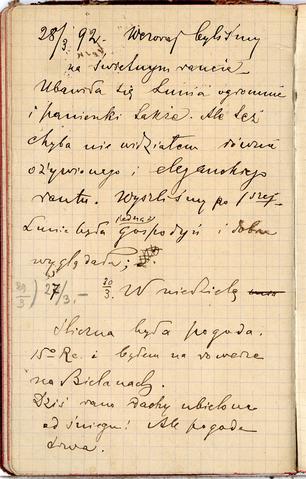 28/3. 92. Wczoraj byliśmy
na świetnym raucie.
Ubawiła się Lunia ogromnie
i panienki także. Ale też
chyba nie widziałem równie
ożywionego i eleganckiego
rautu. Wyszliśmy po
Lunia była gospodyń i dobrze
wyglądała;
29/3) 27/3. 30/3. W niedzielę
śliczna była pogoda.
15° Re. i byłem na rowerze
na Bielanach.
Dziś rano dachy ubielone
od śniegu! Ale pogoda